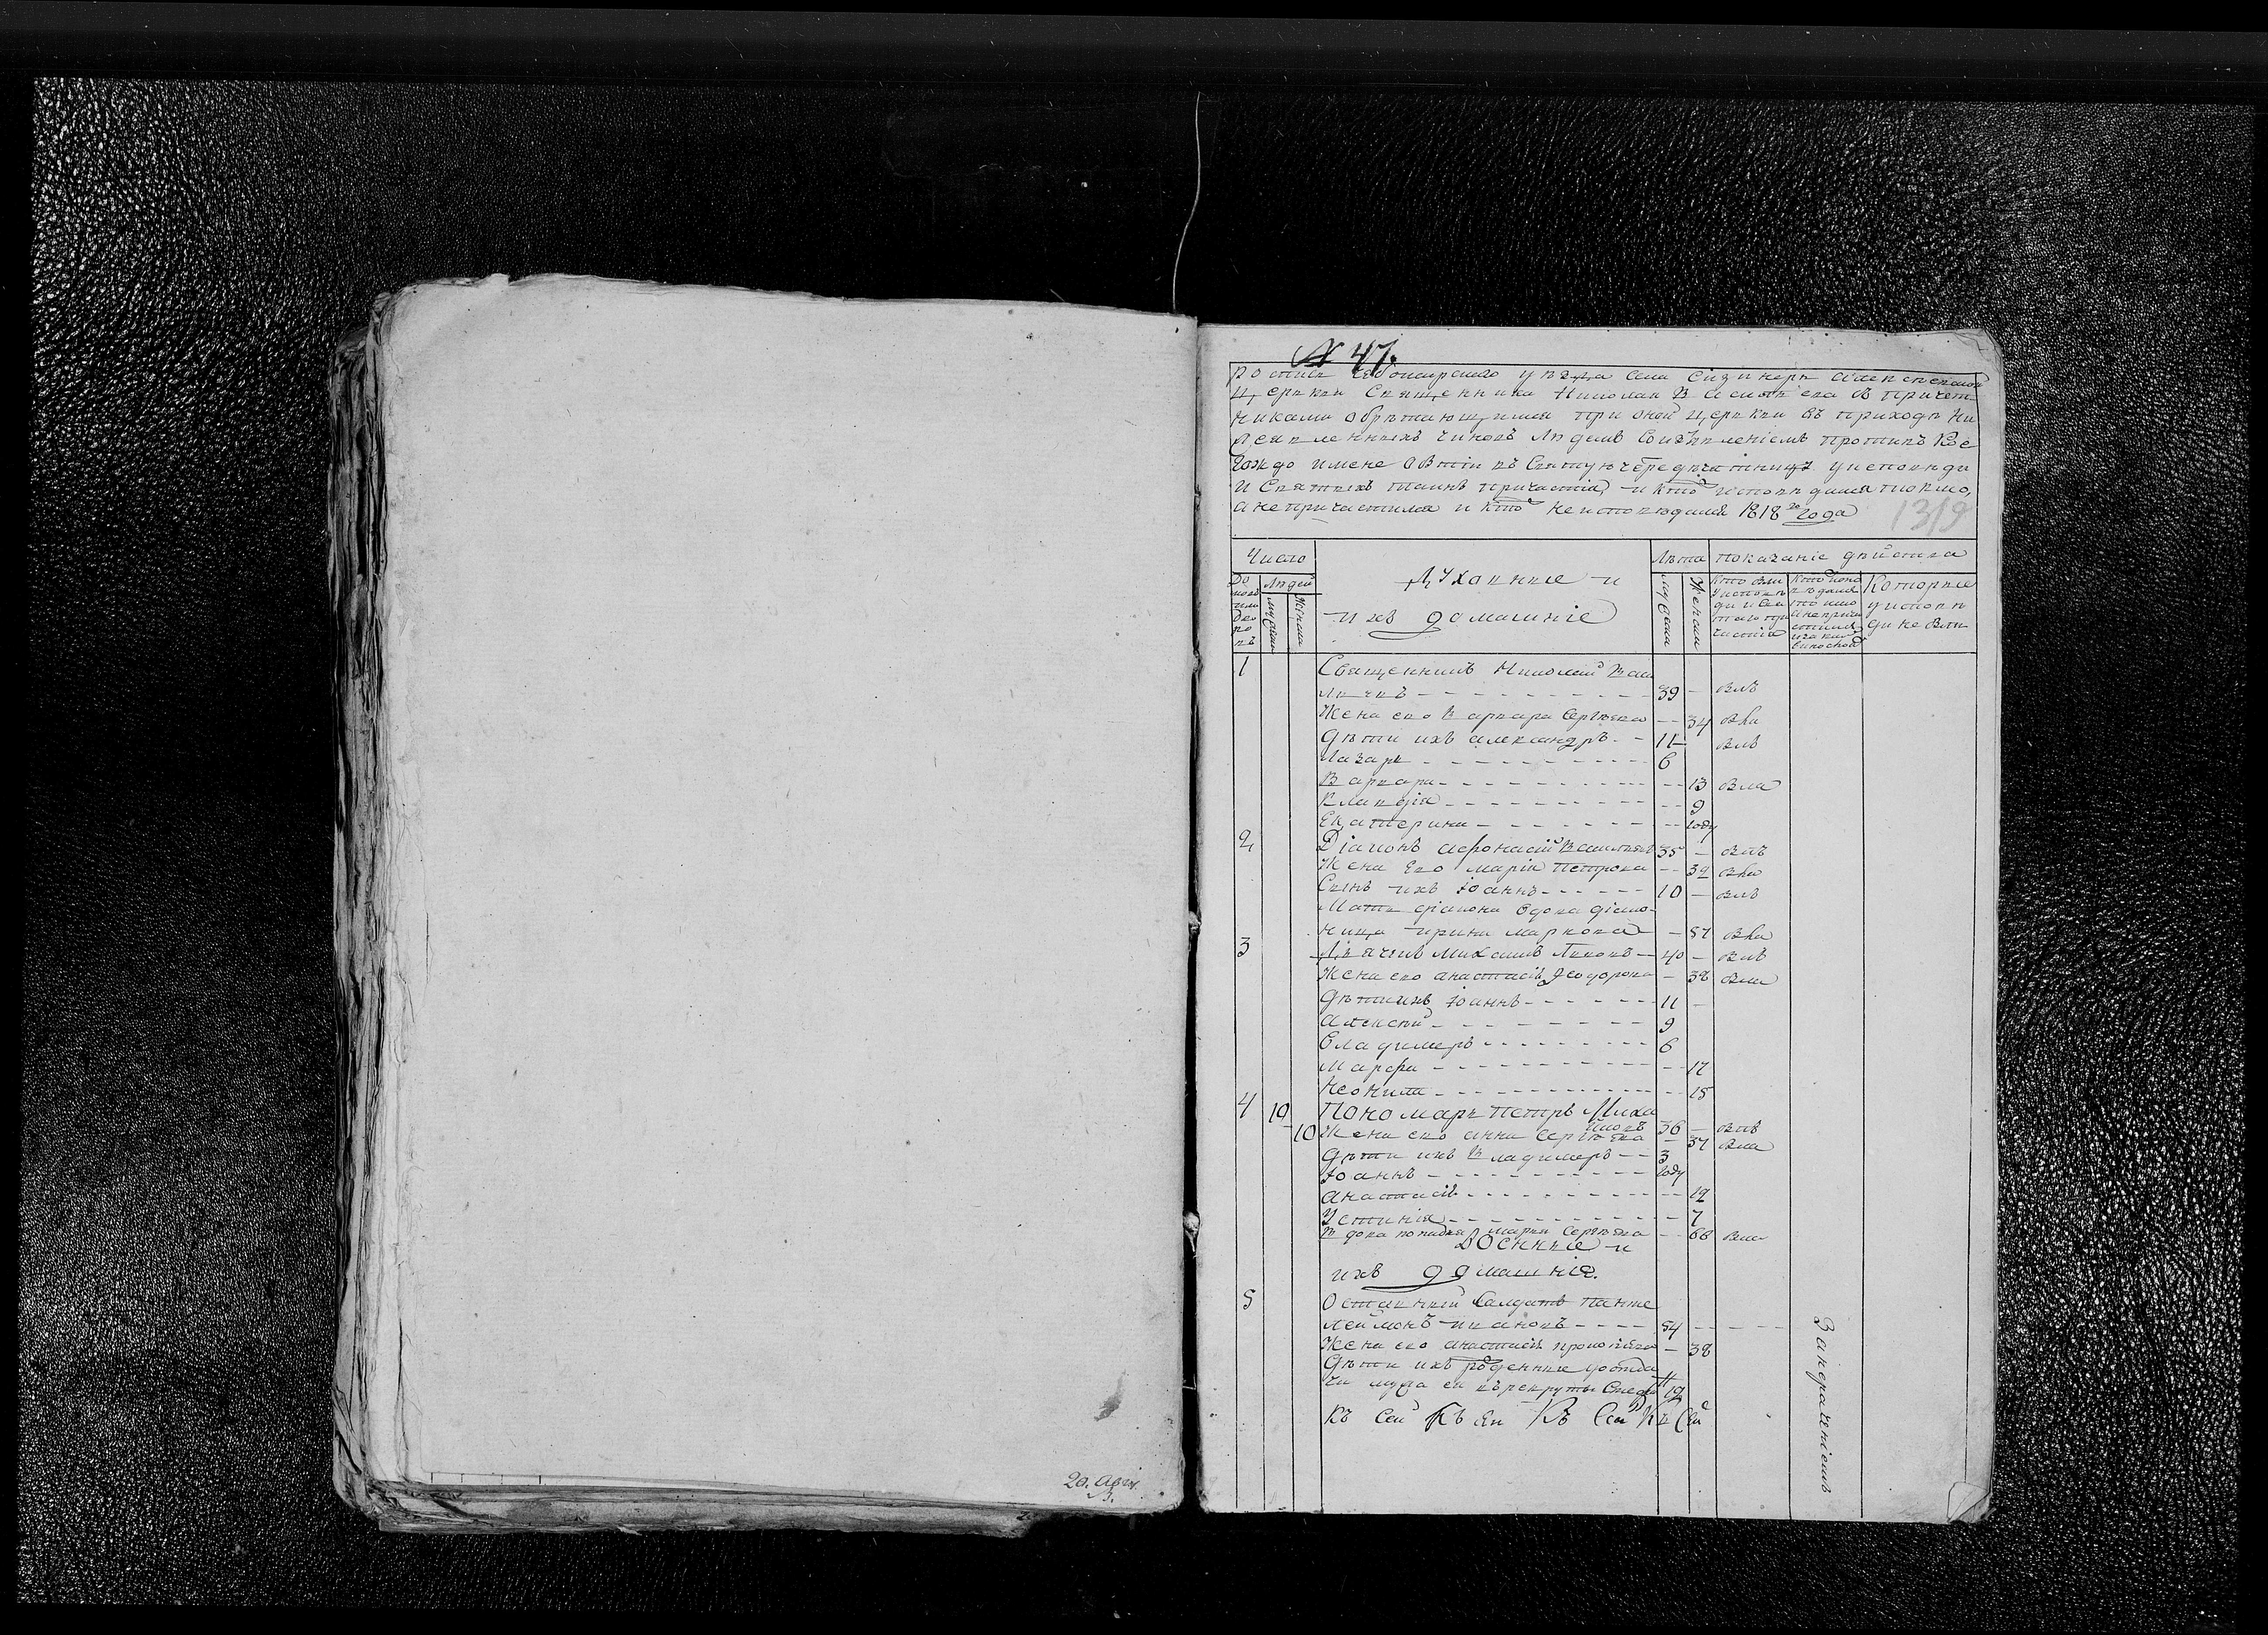 № 47.
Роспись Чебоксарскаго уѣзда села
Церкви Священника Николая Васильева съ причет
никами обрѣтающимися при оной церкви въ приходѣ ни
женныхъ чиновъ людемъ со изъявленіемъ противъ кое
гождо имене о бытіи въ Святую четыредесятницу у исповѣди
и Святыхъ таинъ причастія, и кто исповѣдался токмо,
а не причастился и кто не исповѣдался 1818 го года
1319
Число
Духовные и
ихъ домашніе
Лѣта
показаніе дѣйства
До
мовъ
или
дво
ро
въ
Людей
мужска
женска
мужска
женска
Кто был
у исповѣ
ди и Свя
таго при
частія
Кто испо
вѣдался
токмо
а не прича
стился
и за какой
виною
Которые
у исповѣ
ди не были
1 Священникъ Николай Васи
льевъ 39 - былъ
Жена его Варвара Сергѣева 34 была
Дѣти ихъ Александръ 11 былъ
Лазарь 6
Варвара 13 была
Клавдія 9
Екатерина году
2 Діаконъ Афонасій Васильевъ 35 - былъ
Жена Его Марія Петрова 32 была
Сынъ ихъ Іоаннъ 10 - былъ
Мать діакона вдова діако
ница Ирина Маркова 57 была
3 Дьячекъ Михаилъ Львовъ 40 - былъ
Жена его Анастасія Феодорова - 38 была
Дѣти ихъ Іоаннъ 11 -
Алексѣй 9
Владимеръ 6
Марфа 17
Неонила 15
4 10 Пономарь Петръ Миха
йловъ 36 - былъ
10 Жена его Анна Сергѣева - 37 была
Дѣти ихъ Владимеръ 3
Іоаннъ году
Анастасія 12
Устинія 7
Вдова попадья Марья Сергѣева 66 была
Военные и
ихъ домашніе.
5 Отставный Салдатъ Панте
леймонъ Ивановъ 54
Жена его Анастасія Прокопьева - 38
Дѣти ихъ рожденные до отда
чи мужа ея въ рекруты 19
Къ сей Къ ей Къ Сей Къ Сей
За нераченіемъ